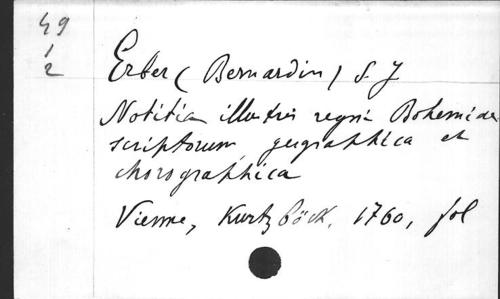 49
1
2
Erber (Bernardin) S. J
Notitia illustris regni Bohemiae
scriptorum geographica et
chorographica
Vienne, Kurtzböck, 1760, fol